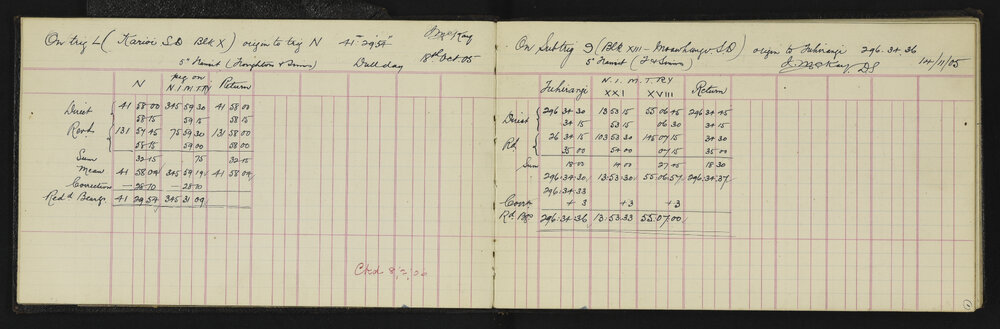 On trig L ( Karioi S.D Blk X ) origin to trig N 41° 29' 54"
J McKay
5" Transit ( Troughton & Simms ) Dull day 18th Oct. 05
N peg on N.I.M.T.RY Return
Direct 41 58 00 345 59 30 41 58 00
58 15 59 15 58 15
Revd 131 57 45 75 59 30 131 58 00
58 15 59 00 58 00
Sum 32 15 75 32 15
Mean 41 58 04 345 59 19 41 58 04
Correction — 28 10 — 28 10
Redd Beargs 41 29 54 345 31 09
Ckd
On Subtrig 9 ( Blk XIII - Moawhango S.D ) origin to Juheranji 296.34.36
5" Transit ( T & Simms ) J. McKay. DS 14/11/05
N. I. M. T. RY
Juheranji XXI XVIII Return
Direct 296 34 30 13 53 15 55 06 45 296 34 45
34 15 53 15 06 30 34 15
Rd 26 34 15 103 53 30 145 07 15 34 30
35 00 54 00 07 15 35 00
Sum 18 00 14 00 27 45 18 30
296.34.30 13.53.30 55.06.57 296.34.37
296.34.33
Corrn + 3 + 3 + 3
Rd. Bgs 296.34.36 13.53.33 55.07.00